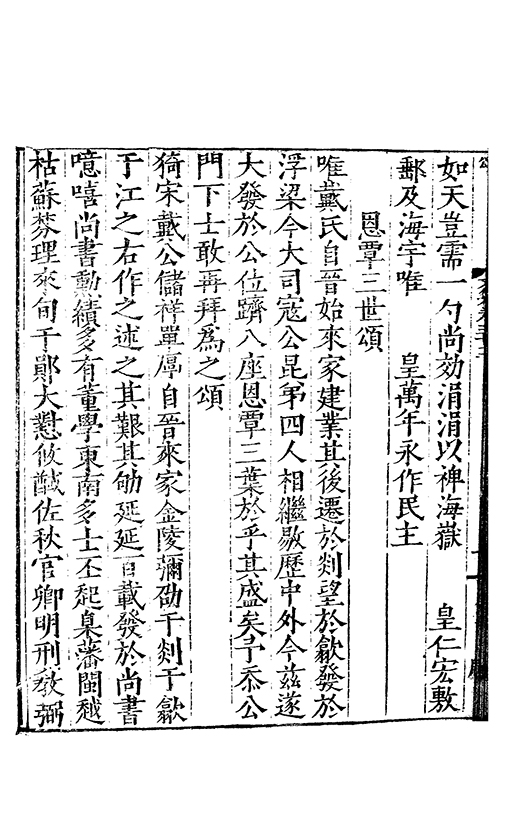 頌
如天豈需一勺尚効涓涓以裨海嶽　皇仁宏敷
郵及海宇唯　皇萬年永作民主
恩覃三世頌
唯戴氏自晉始來家建業其後遷於剡望於歙發於
浮梁今大司寇公昆弟四人相繼敭歷中外今茲遂
大發於公位躋八座恩覃三葉於乎其盛矣予忝公
門下士敢再拜為之頌
猗宋戴公儲祥單厚自晉來家金陵彌劭于剡于歙
于江之右作之述之其艱其劬延延百載發於尚書
噫嘻尚書勳績多有董學東南多士丕起臬藩閩越
枯蘇棼理來旬于鄖大憝攸馘佐秋官卿明刑敎弼